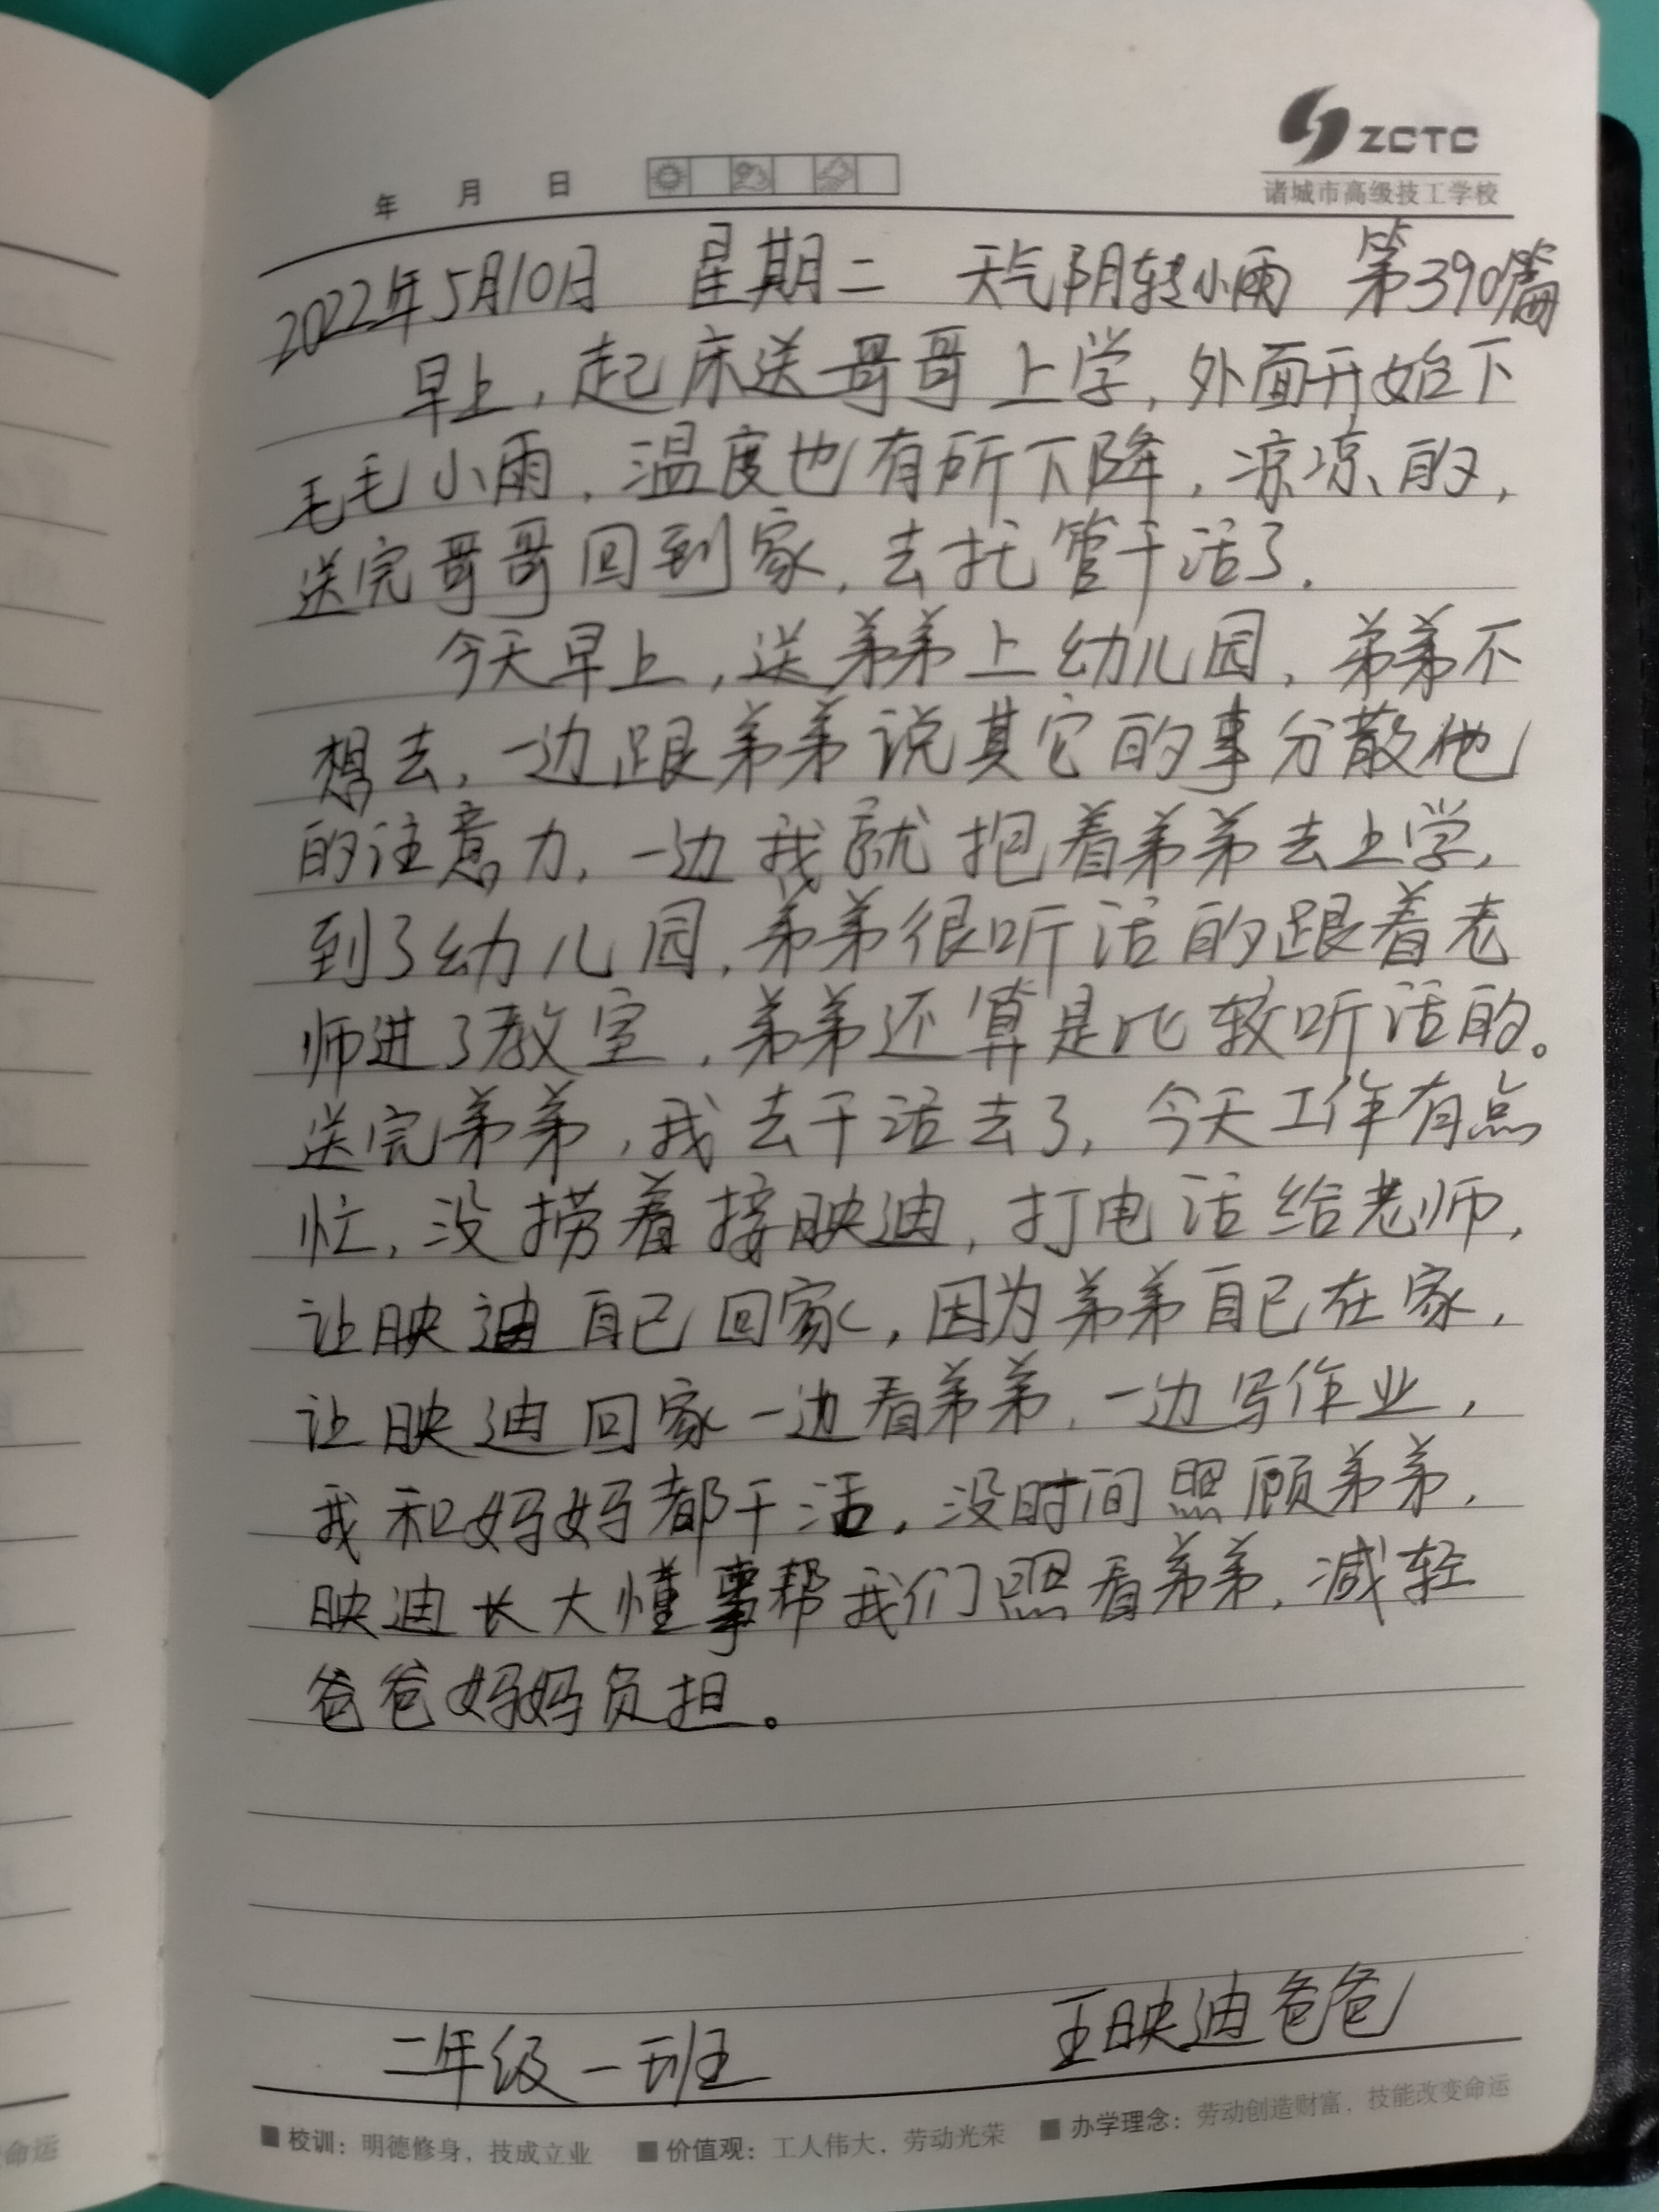 ZCTC
诸城市高级技工学校
年 月 日
2022年5月10日 星期二 天气阴转小雨 第390篇
早上，起床送哥哥上学，外面开始下
毛毛小雨，温度也有所下降，凉凉的，
送完哥哥回到家，去托管干活了.
今天早上，送弟弟上幼儿园，弟弟不
想去，一边跟弟弟说其它的事分散他
的注意力，一边我就抱着弟弟去上学，
到了幼儿园，弟弟很听话的跟着老
师进了教室，弟弟还算是比较听话的。
送完弟弟，我去干活去了，今天工作有点
忙，没捞着接映迪，打电话给老师，
让映迪自己回家，因为弟弟自己在家，
让映迪回家一边看弟弟，一边写作业，
我和妈妈都干活，没时间照顾弟弟，
映迪长大懂事帮我们照看弟弟，减轻
爸爸妈妈负担。
二年级一班 王映迪爸爸
■校训：明德修身，技成立业 ■价值观：工人伟大，劳动光荣 ■办学理念：劳动创造财富，技能改变命运
命运